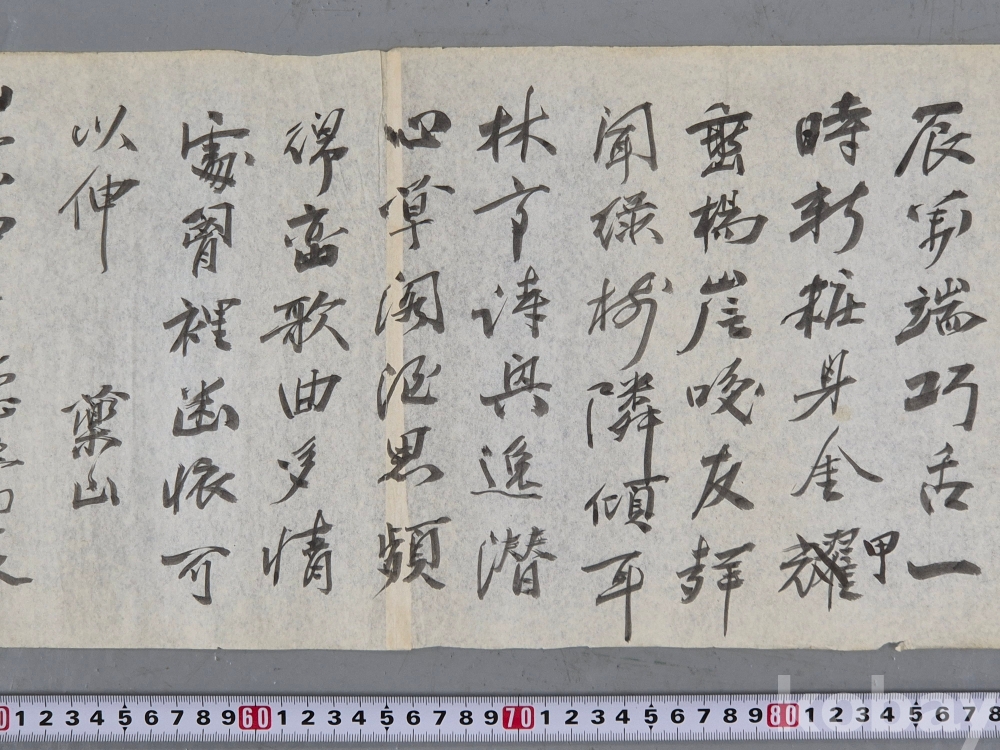 辰萬端巧舌一
時新粧身金耀甲
楊崖喚友
聞綠樹隣傾耳
林亭詩興逸潛
心草閣酒思頻
得高歌曲多情
處胷裡幽懷可
以伸 藥山
1 2 3 4 5 6 7 8 9 60 1 2 3 4 5 6 7 8 9 70 1 2 3 4 5 6 7 8 9 80 1 2 3 4 5 6 7 8
kobay